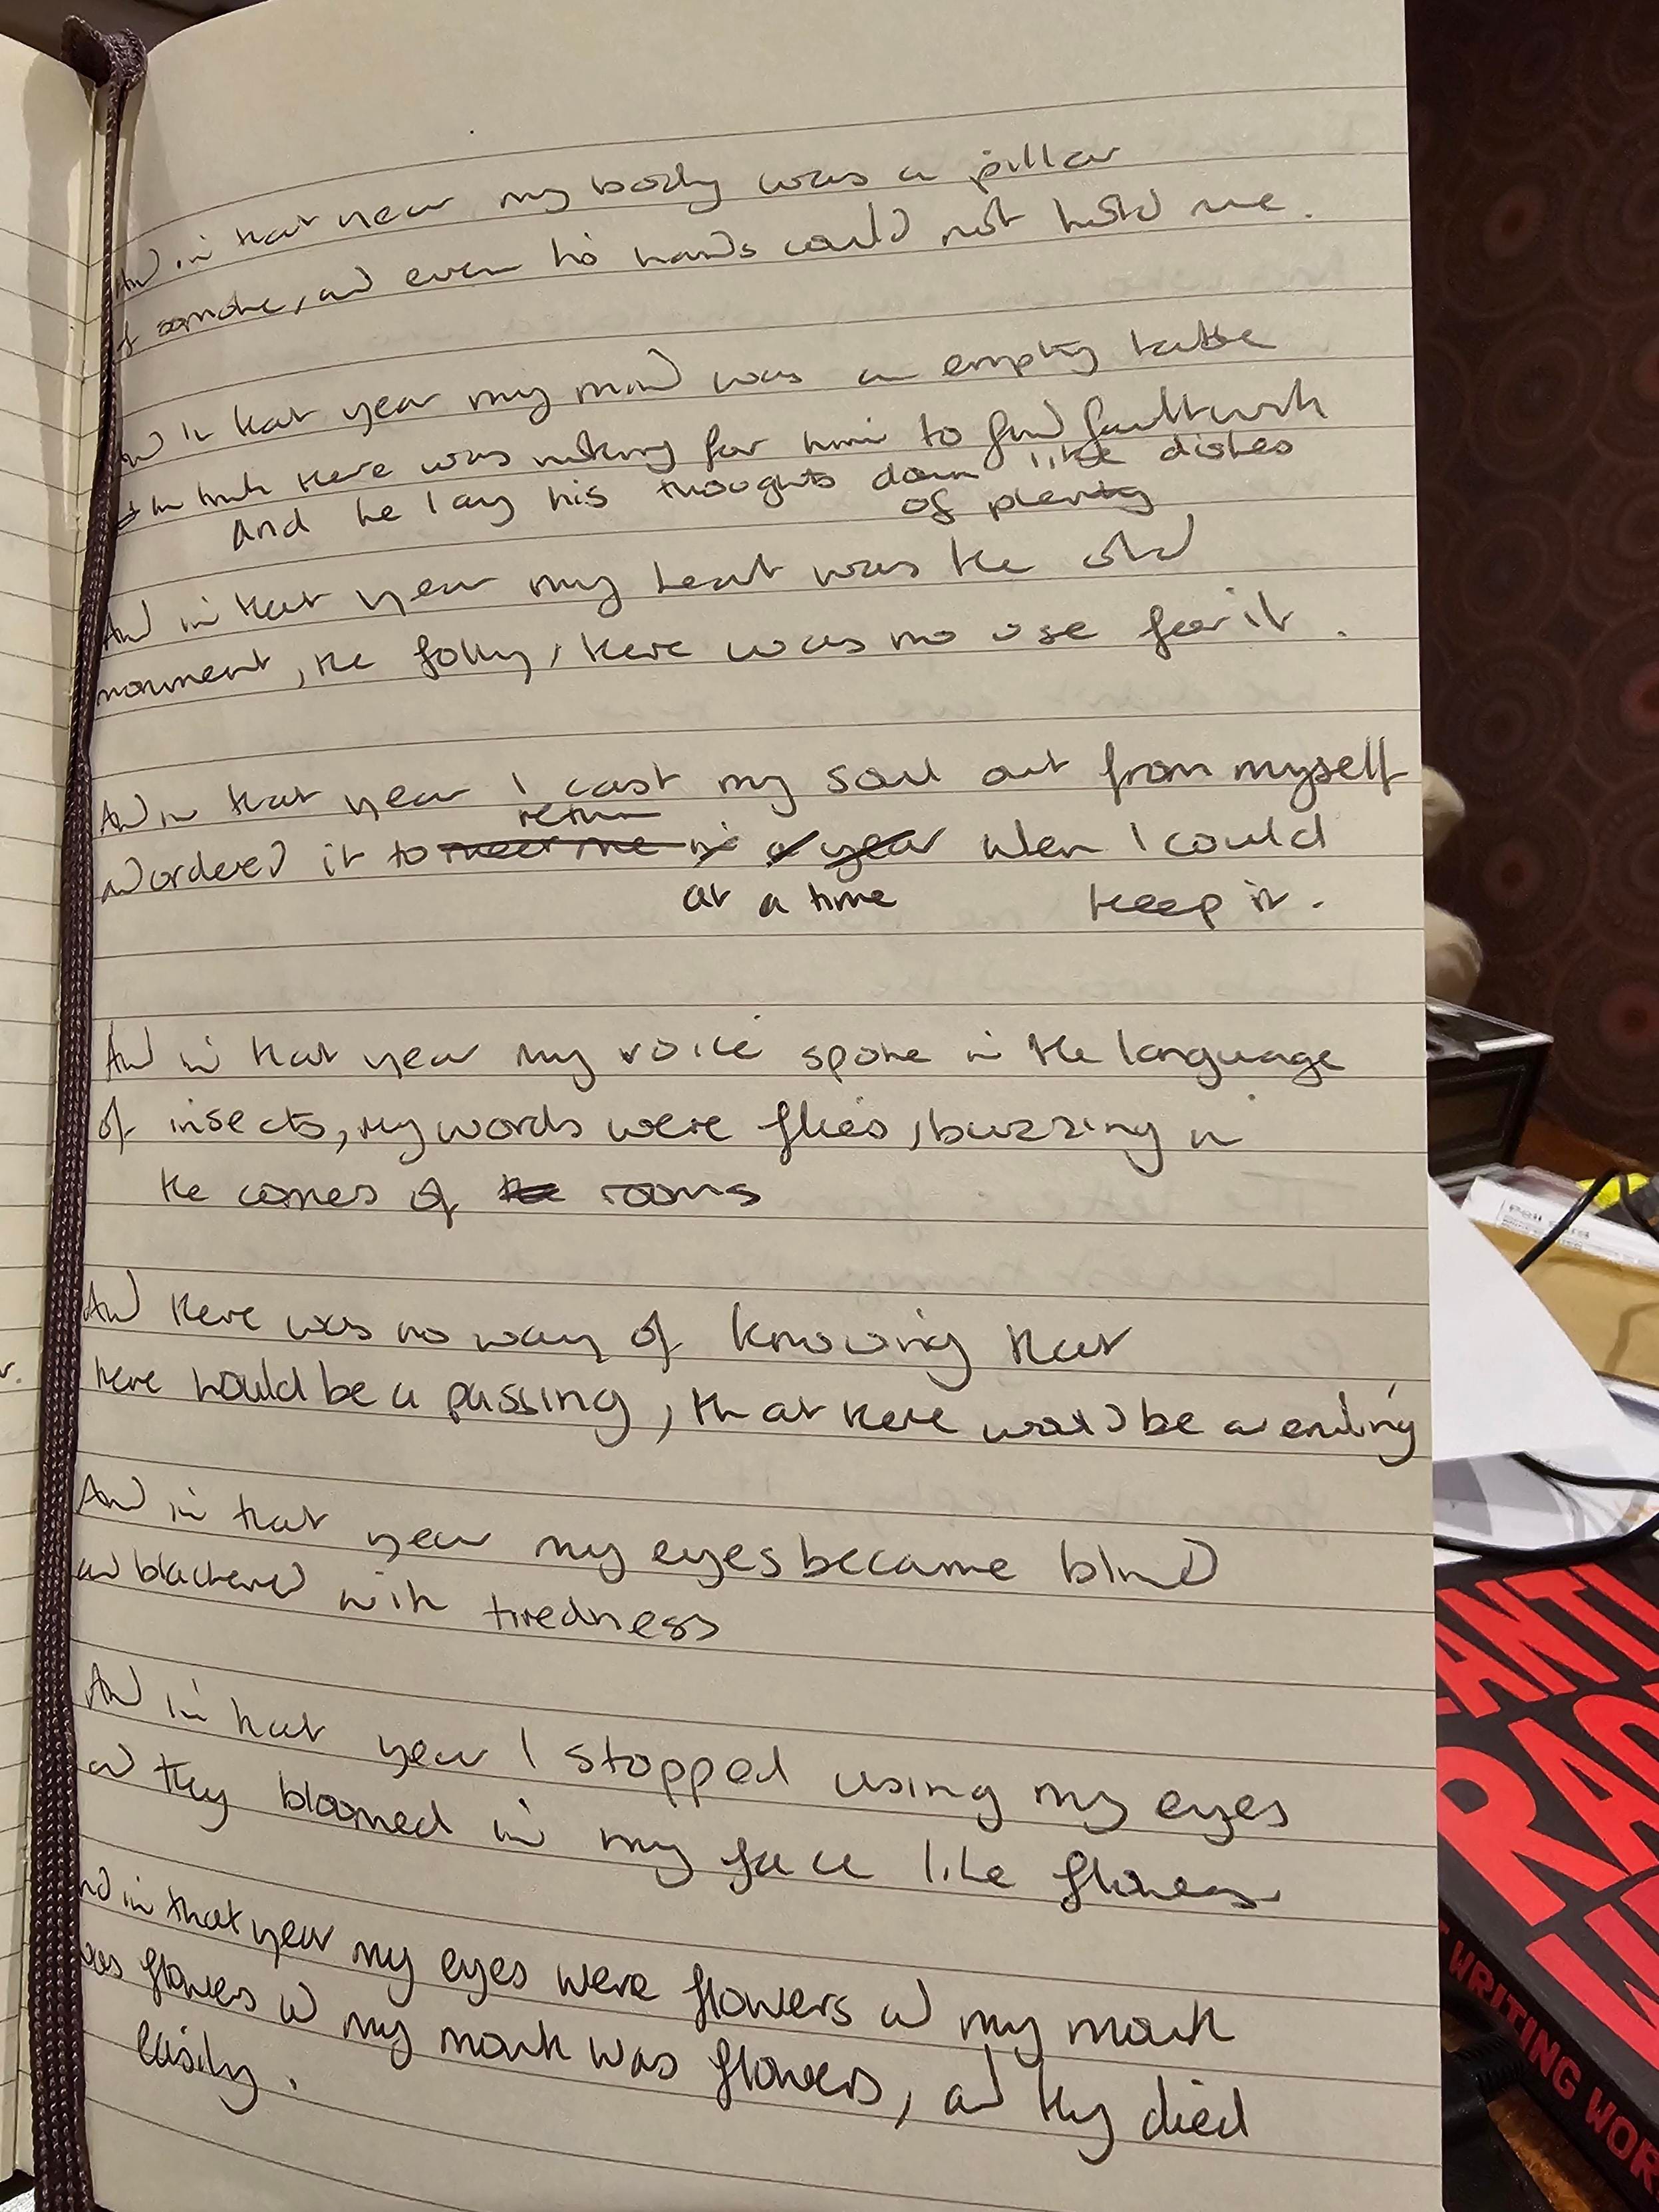 And in that year my body was a pillar
of smoke, and even his hands could not hold me.
And in that year my mind was an empty table
there was nothing for him to find fault with
And he lay his thoughts down like dishes
of plenty
And in that year my heart was the old
monument, the folly, there was no use for it.
And in that year I cast my soul out from myself
return
and ordered it to meet me in a year when I could
at a time keep it.
And in that year my voice spoke in the language
of insects, my words were flies, buzzing in
the corners of the rooms
And there was no way of knowing that
there would be a passing, that there would be an ending
And in that year my eyes became blind
and blackened with tiredness
And in that year I stopped using my eyes
and they bloomed in my face like flowers
And in that year my eyes were flowers and my mouth
was flowers and my mouth was flowers, and they died
easily.
r.
ANTI
RAC
WRITING WOR